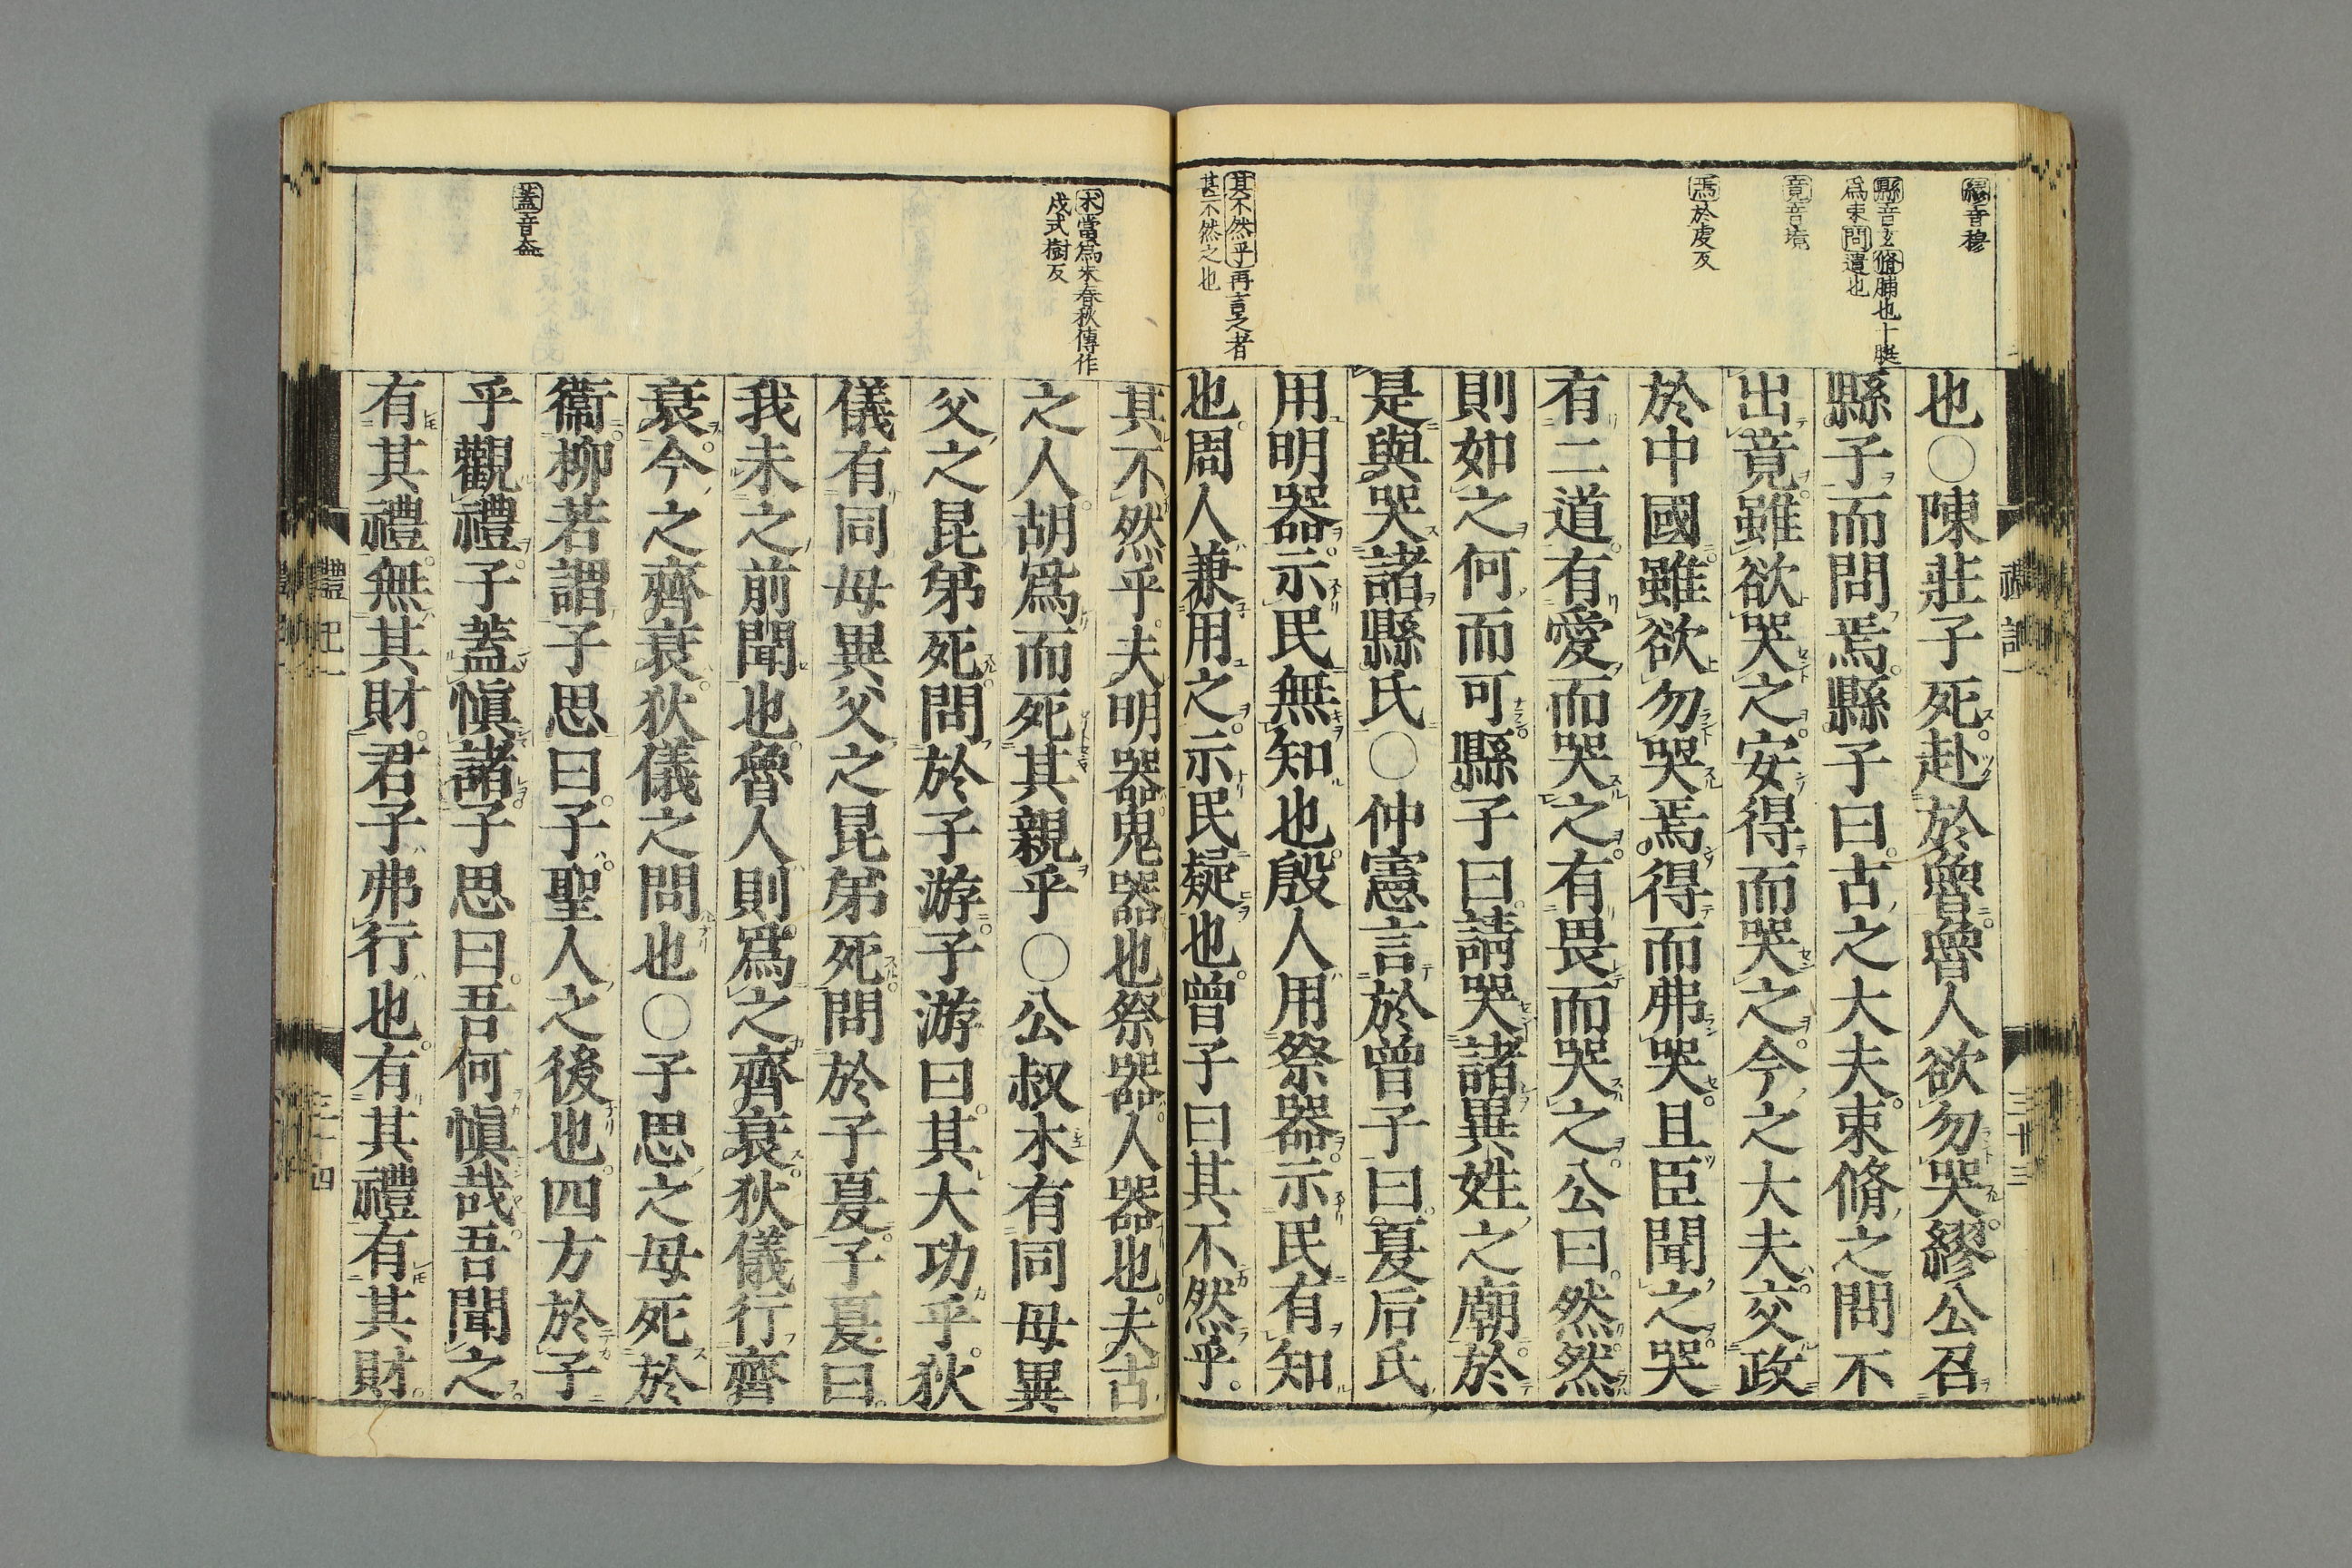 繆音穆
縣音玄脩脯也十脡
爲束問遺也
竟音境
焉於虔反
其不然乎再言之者
甚不然之也
也○陳莊子死赴於魯魯人欲勿哭繆公召
縣子而問焉縣子曰古之大夫束脩之問不
出竟雖欲哭之安得而哭之今之大夫交政
於中國雖欲勿哭焉得而弗哭且臣聞之哭
有二道有愛而哭之有畏而哭之公曰然然
則如之何而可縣子曰請哭諸異姓之廟於
是與哭諸縣氏○仲憲言於曾子曰夏后氏
用明器示民無知也殷人用祭器示民有知
也周人兼用之示民疑也曾子曰其不然乎
禮記一
三十三
木當爲朱春秋傳作
戍式樹反
蓋音盍
其不然乎夫明器鬼器也祭器人器也夫古
之人胡爲而死其親乎○公叔木有同母異
父之昆弟死問於子游子游曰其大功乎狄
儀有同母異父之昆弟死問於子夏子夏曰
我未之前聞也魯人則爲之齊衰狄儀行齊
衰今之齊衰狄儀之問也○子思之母死於
衞柳若謂子思曰子聖人之後也四方於子
乎觀禮子蓋愼諸子思曰吾何愼哉吾聞之
有其禮無其財君子弗行也有其禮有其財
禮記一
三十四